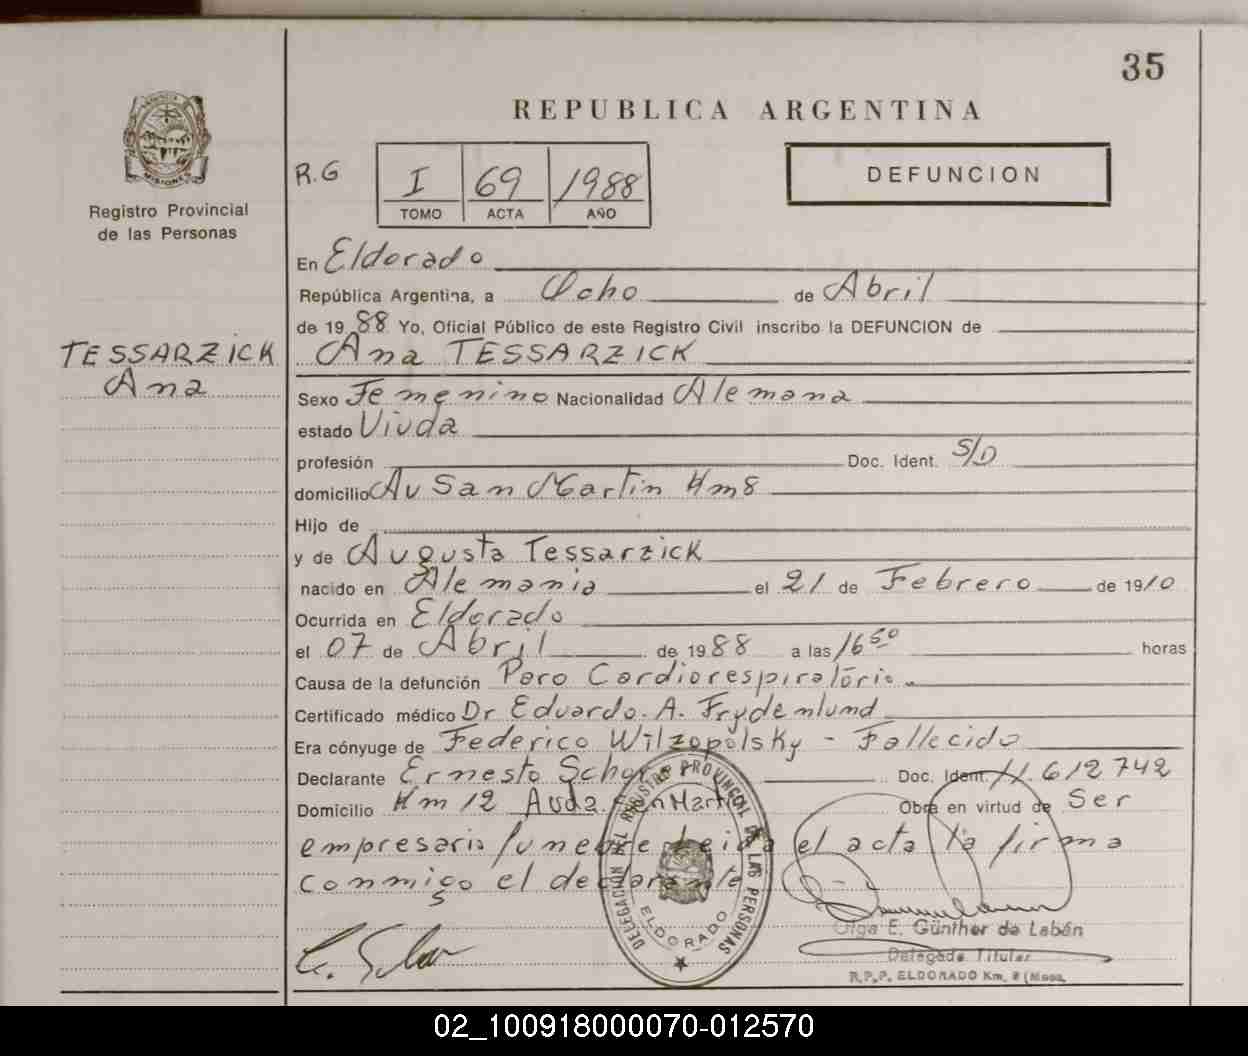 35
REPUBLICA ARGENTINA
R.G I 69 1988 DEFUNCION
TOMO ACTA AÑO
MISIONES
Registro Provincial
de las Personas
En Eldorado
República Argentina, a Ocho de Abril
de 19 88 Yo, Oficial Público de este Registro Civil inscribo la DEFUNCION de
TESSARZICK
Ana
Ana TESSARZICK
Sexo Femenino Nacionalidad Alemana
estado Viuda
profesión Doc. Ident. S/D
domicilio Av San Martin Km8
Hijo de
y de Augusta Tessarzick
nacido en Alemania el 21 de Febrero de 1910
Ocurrida en Eldorado
el 07 de Abril de 19 88 a las 16 50 horas
Causa de la defunción Paro Cardiorespiratório
Certificado médico Dr Eduardo. A. Frydenlund
Era cónyuge de Federico Wilzopolsky - Fallecido
Declarante Ernesto Doc. Ident. 11.612742
Domicilio Km 12 Avda. San Martin Obra en virtud de Ser
empresario funebre Leida el acta la firma
conmigo el declarante
DELEGACION DEL REGISTRO PROVINCIAL DE LAS PERSONAS
ELDORADO
Olga E. Günther de Labén
Delegada Titular
R.P.P. ELDORADO Km. 8 (Mnes.
02_100918000070-012570